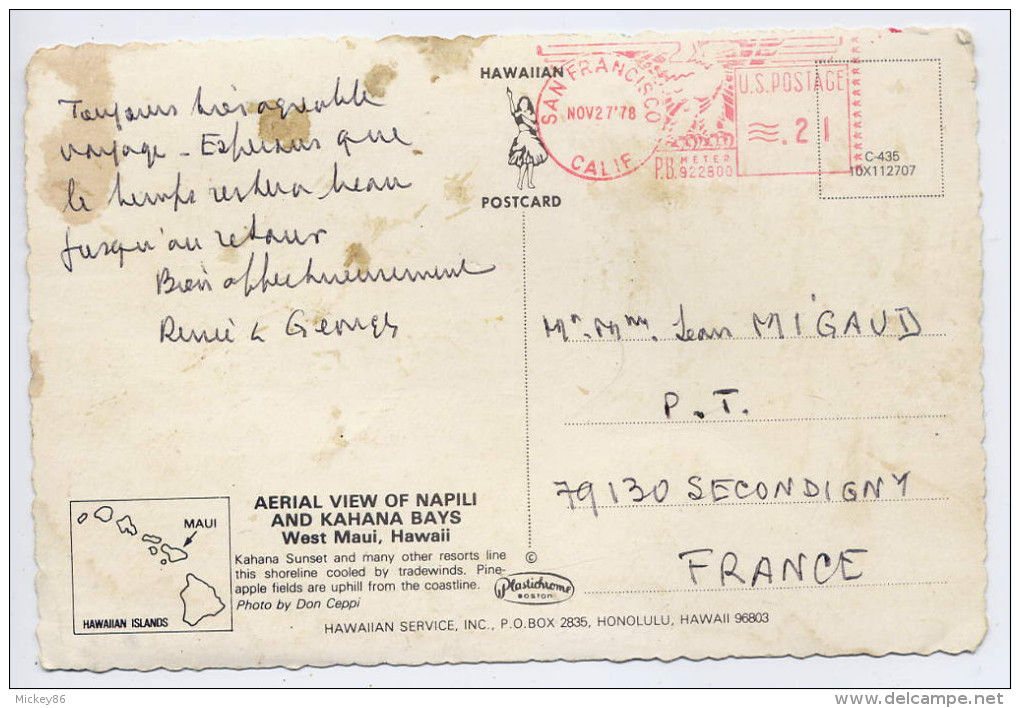 Toujours très agréable
voyage - Espérons que
le temps restera beau
jusqu'au retour
Bien affectueusement
Renée & Georges
HAWAIIAN
POSTCARD
SAN FRANCISCO
NOV 27 '78
CALIF.
P.B. METER
922800
U.S. POSTAGE
.21
C-435
10X112707
Mr. Mme Jean MIGAUD
P.T.
79130 SECONDIGNY
FRANCE
MAUI
HAWAIIAN ISLANDS
AERIAL VIEW OF NAPILI
AND KAHANA BAYS
West Maui, Hawaii
Kahana Sunset and many other resorts line
this shoreline cooled by tradewinds. Pine-
apple fields are uphill from the coastline.
Photo by Don Ceppi
©
Plastichrome
BOSTON
HAWAIIAN SERVICE, INC., P.O.BOX 2835, HONOLULU, HAWAII 96803
Mickey86
www.delcampe.net